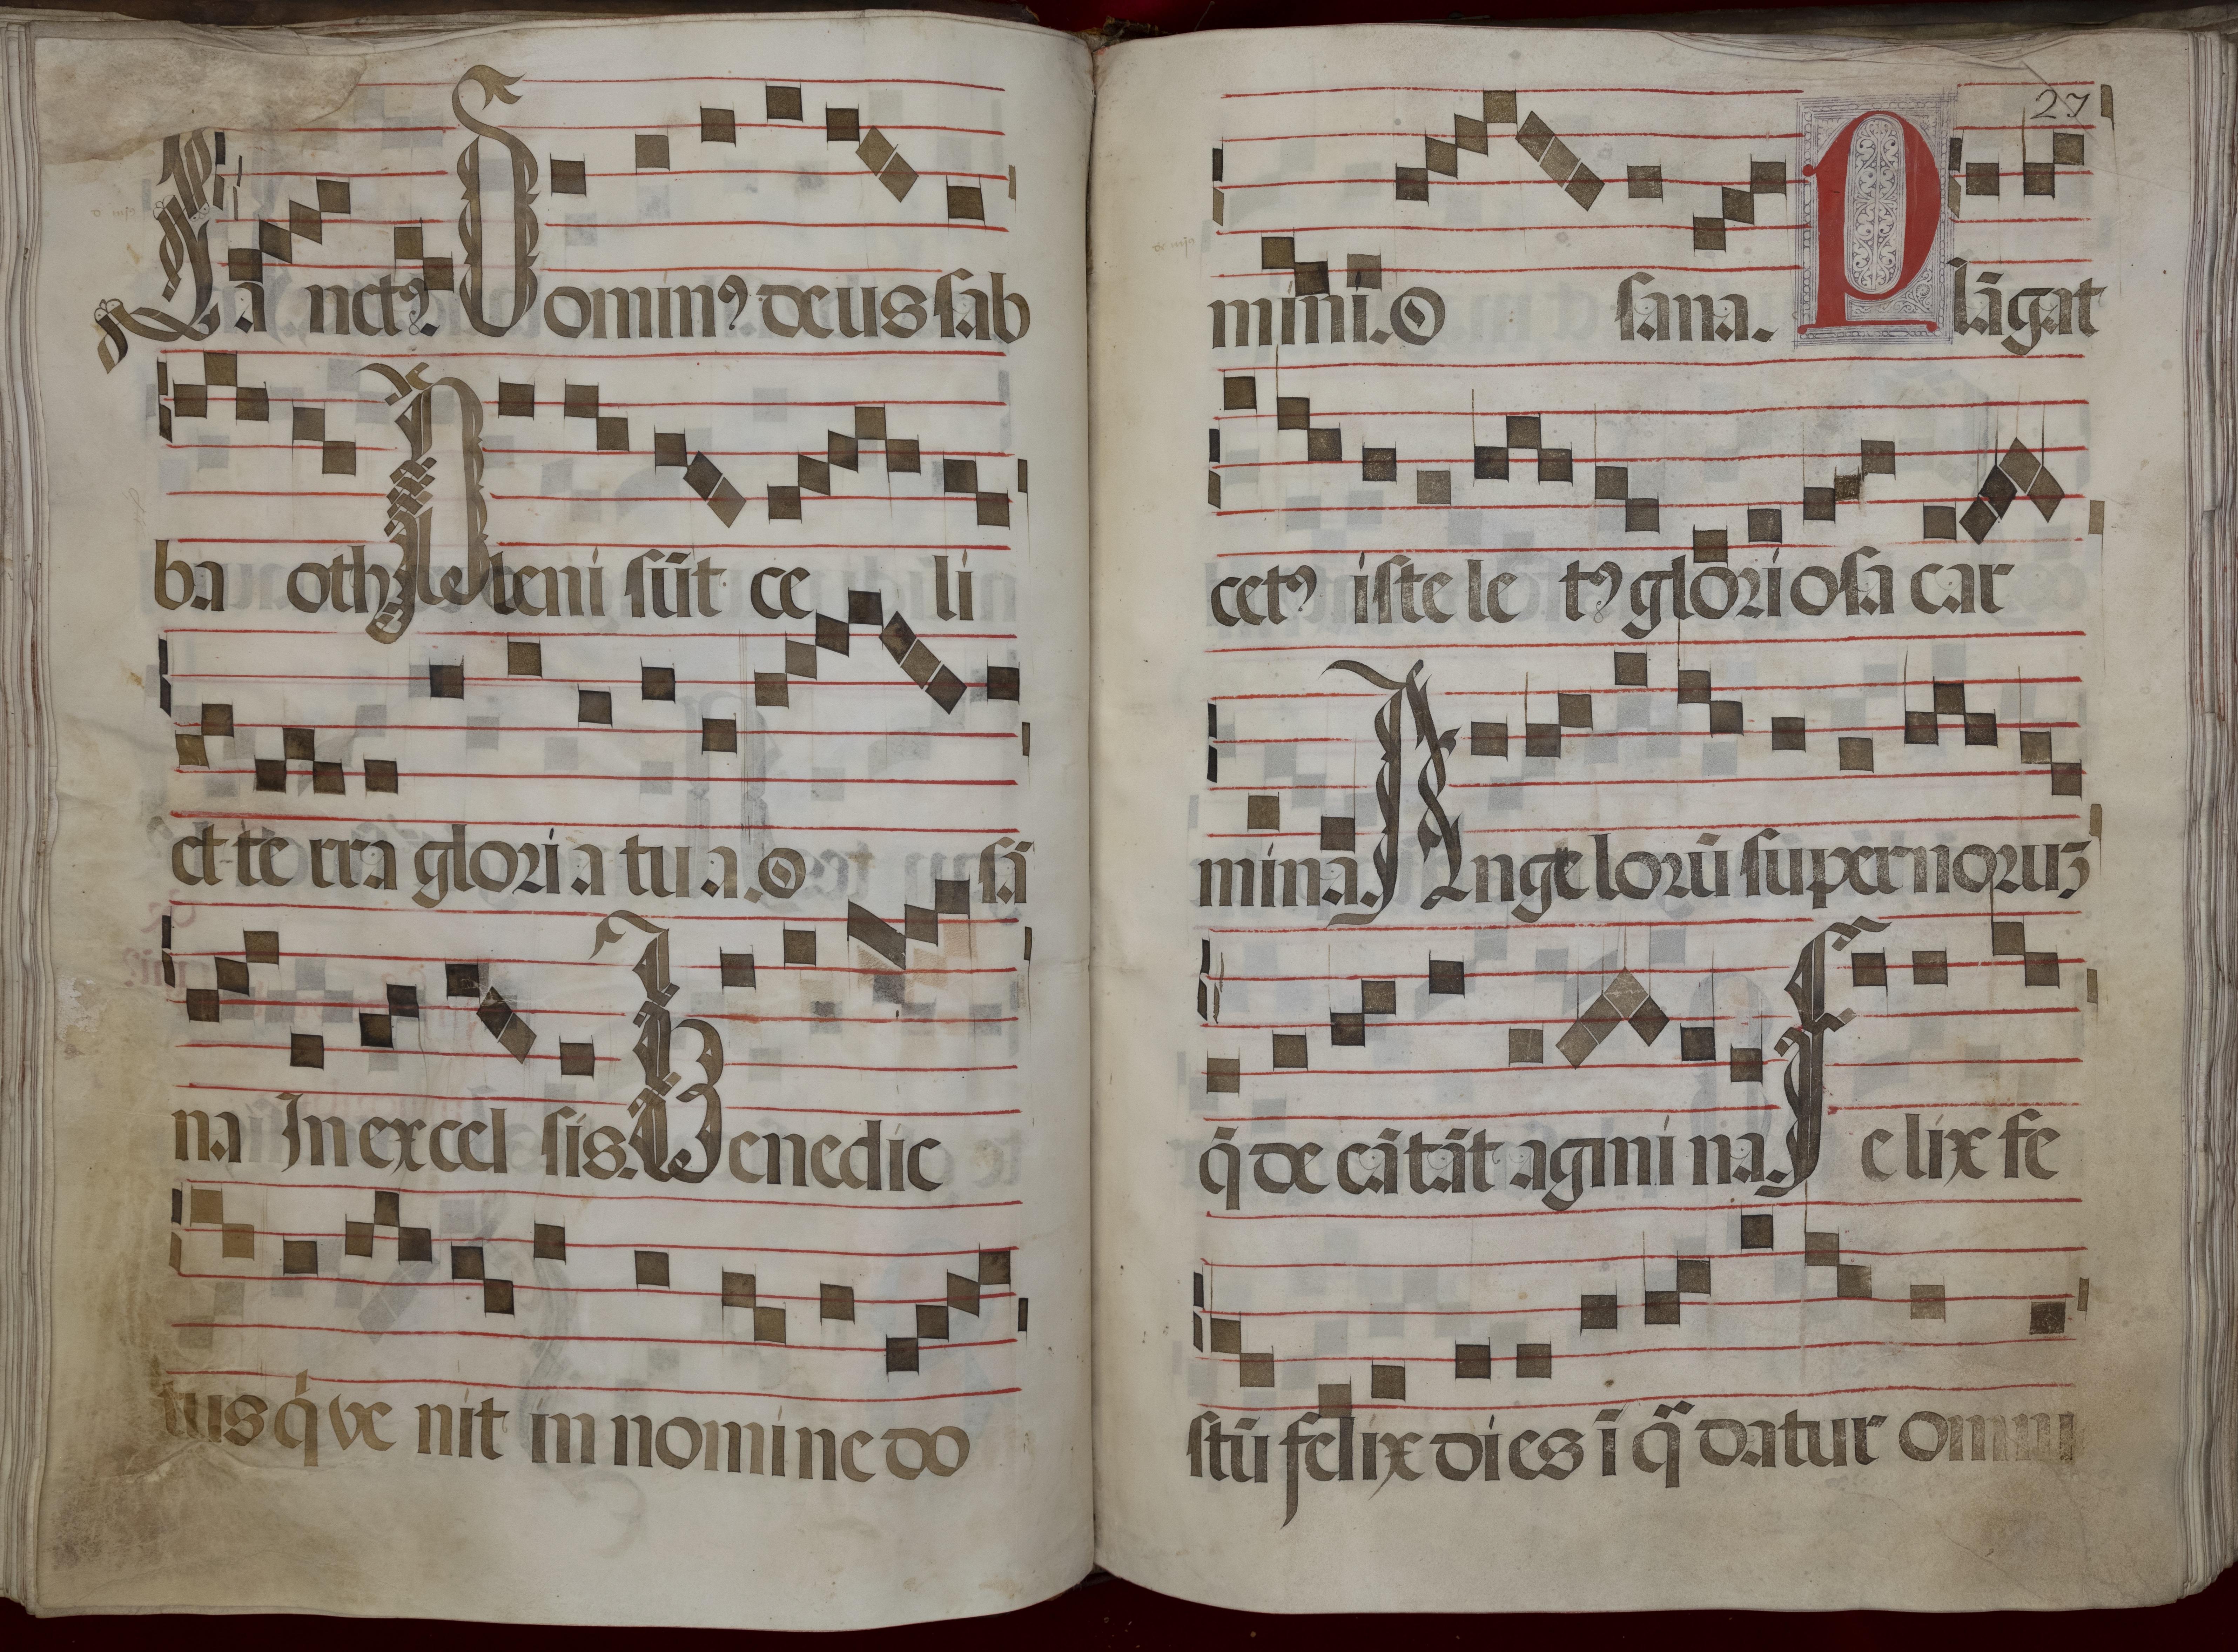 Sa nctꝯ. Dominꝯ deus sab
ba oth pleni sūt ce li
et te rra glori a tu a. O sā
na In excel sis. Benedic
tus q̇ ve nit in nomine do
27
mini. O sana. Plāgat
cetꝯ iste le tꝯ glori osa car
mina. Ange lorū supernoruꝫ
q̄ de cātāt agmi na. Felix fe
stū felix dies ī q̄ datur omni